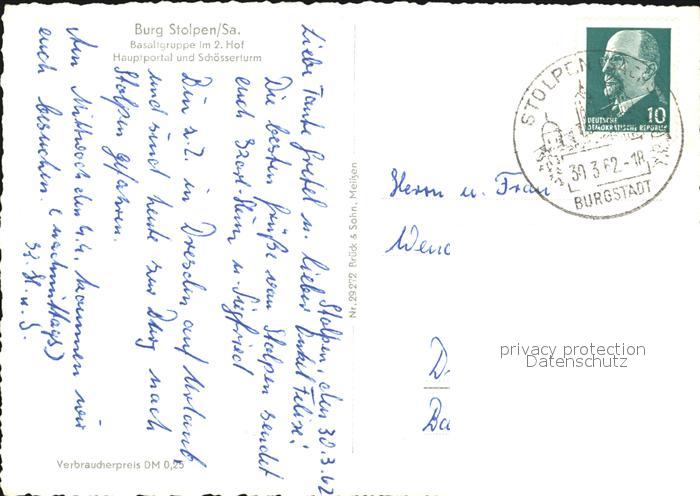 Burg Stolpen/Sa.
Basaltgruppe im 2. Hof
Hauptportal und Schösserturm
Stolpen, den 30.3.62
Liebe Tante Gretel u. lieber Onkel Felix!
Die besten Grüße von Stolpen sendet
euch und Siegfried
Bin z.Z. in Dresden auf Urlaub
und sind heute zur Burg nach
Stolpen gefahren.
Am Mittwoch den 4.4. kommen wir
euch besuchen. (nachmittags)
u. S.
Verbraucherpreis DM 0,25
Nr. 29272 Brück & Sohn, Meißen
DEUTSCHE
DEMOKRATISCHE REPUBLIK
10
STOLPEN
30.3.62-18
BURGSTADT
Herrn u. Frau
privacy protection
Datenschutz